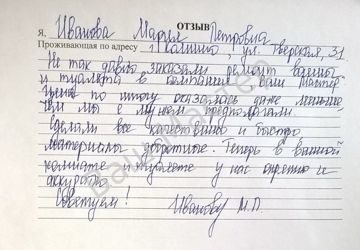 ОТЗЫВ
Я, Иванова Мария Петровна
Проживающая по адресу г. Колпино, ул. Тверская, 31
Не так давно заказали ремонт ванны
и туалета в компании Ваш Мастер
Цена по итогу оказалась даже меньше
чем мы с мужем предполагали.
Сделали все качественно и быстро
материалы добротные. Теперь в ванной
комнате и туалете у нас опрятно и
аккуратно.
Советуем! Иванову М.П.